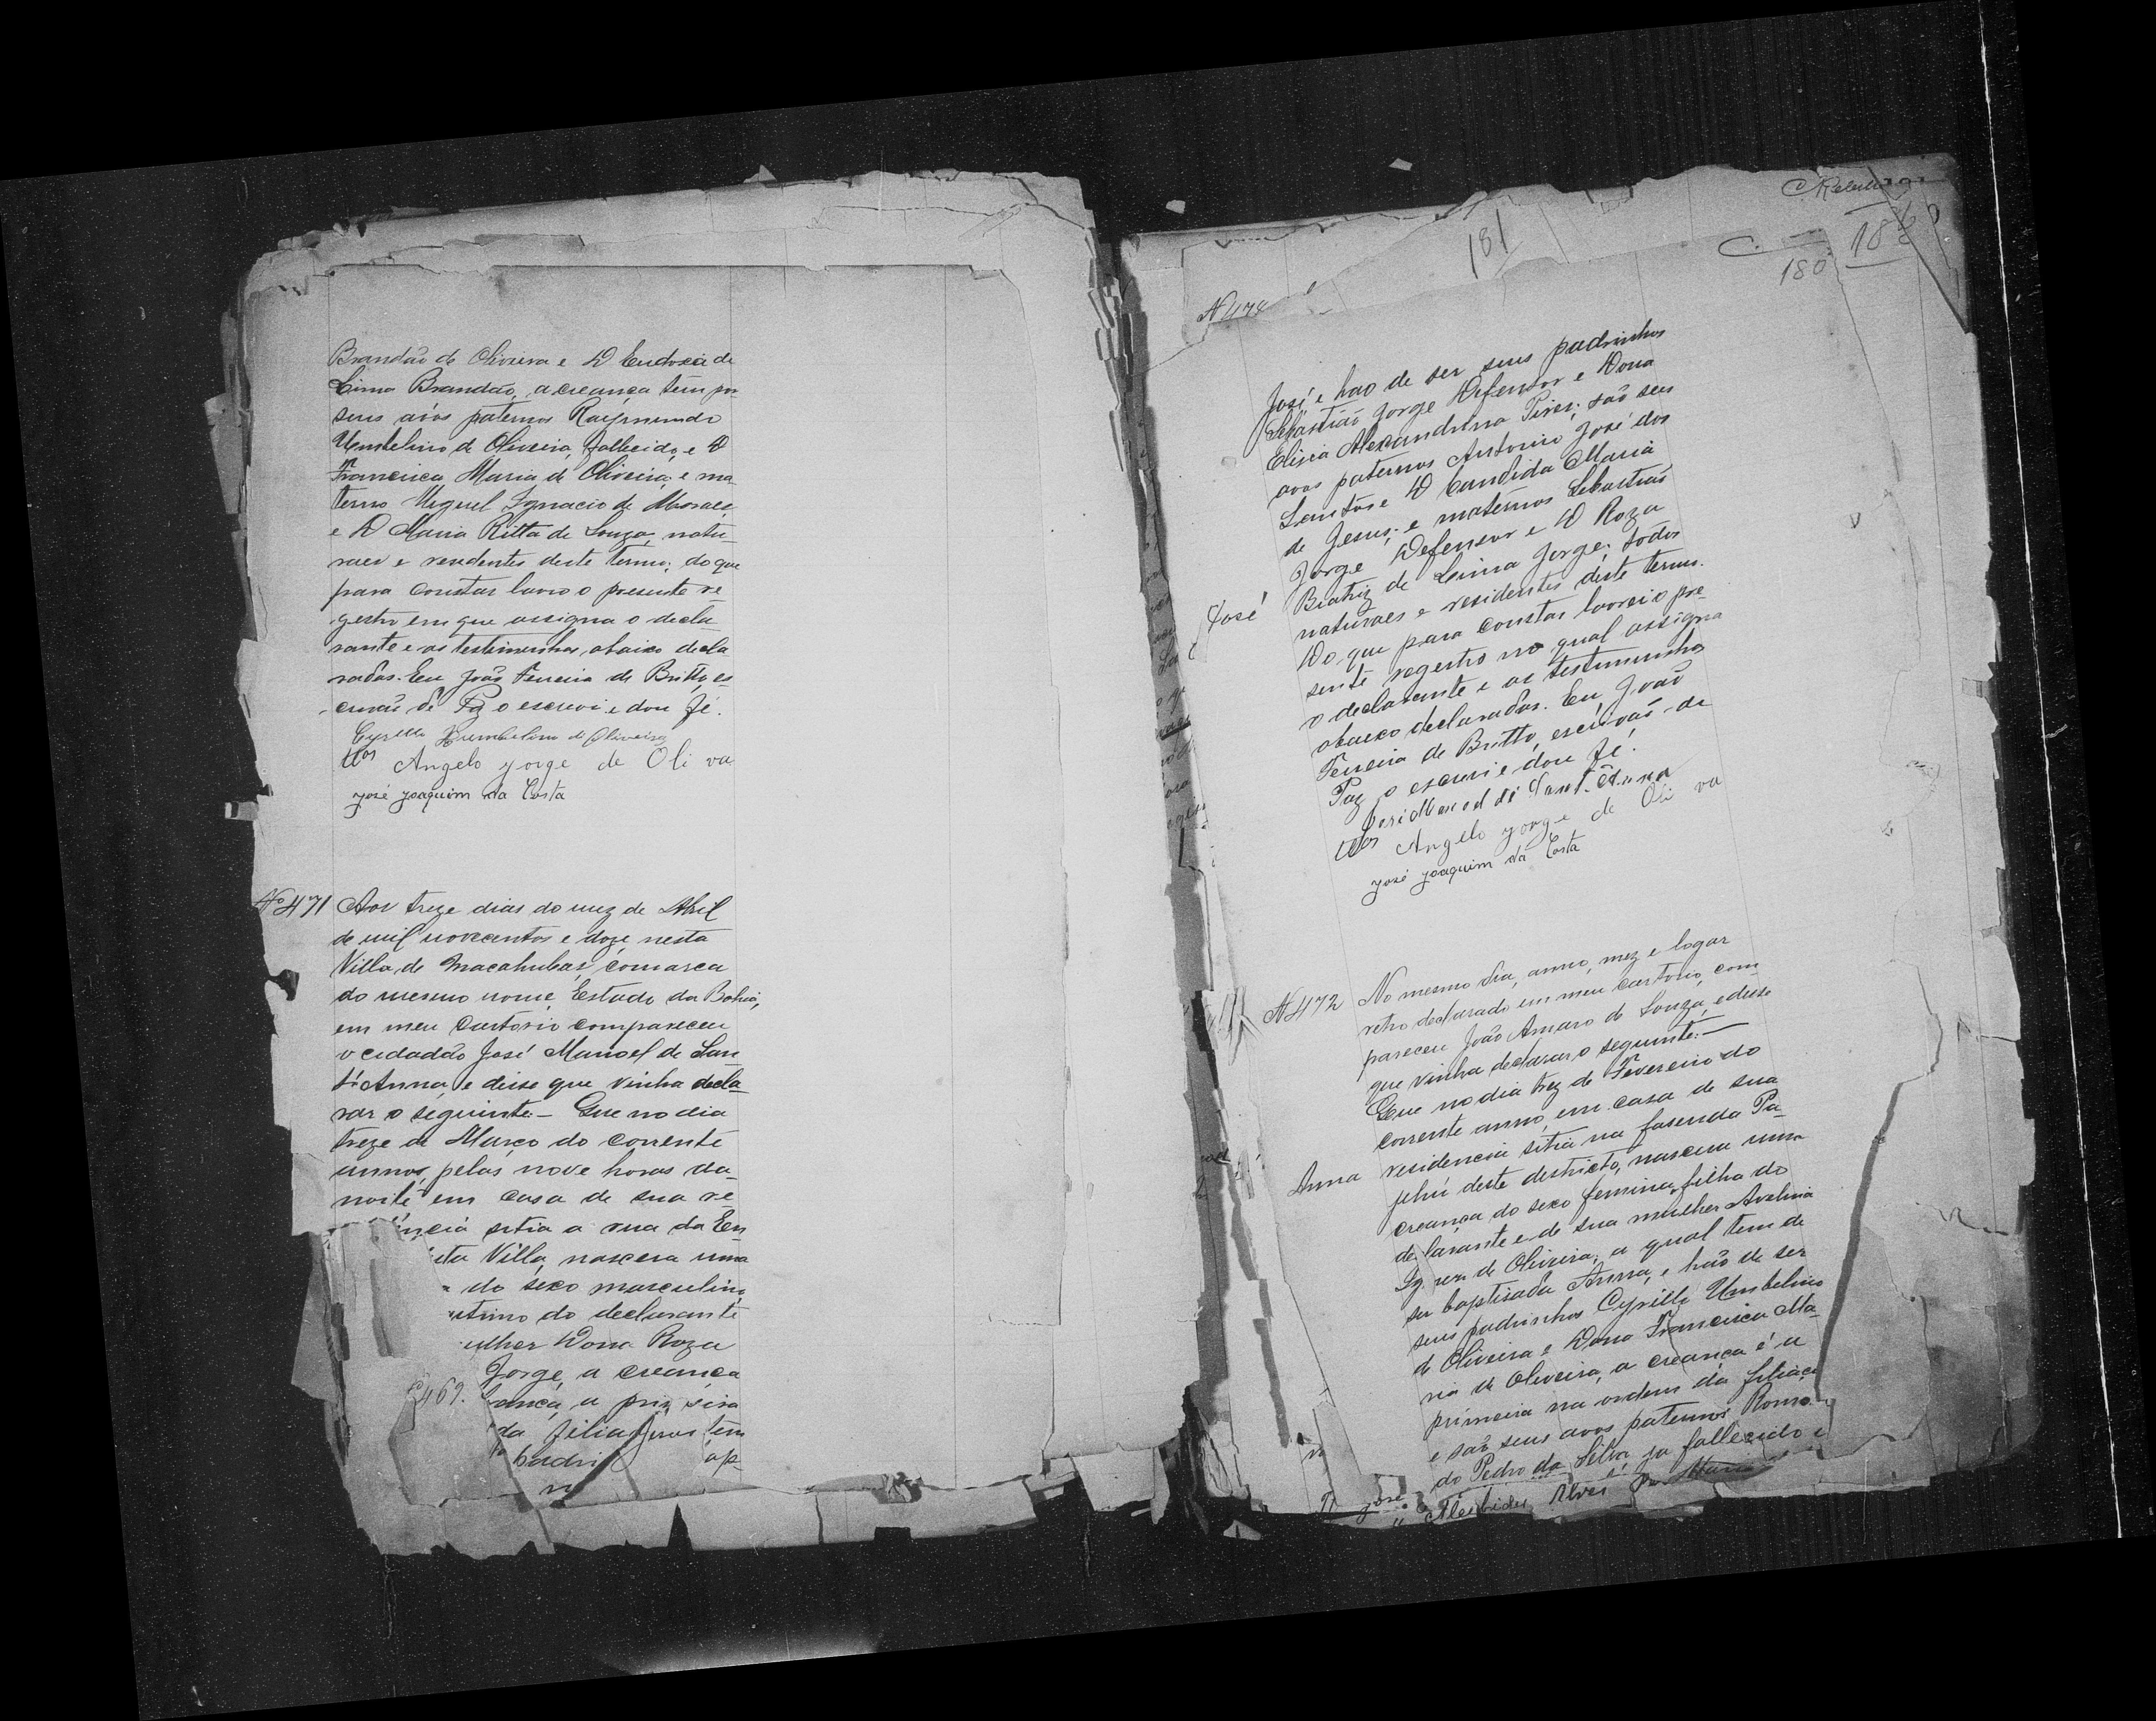 Brandão de Oliveira e D Eudoxia de
Lima Brandão, a creança tem por
seus avós paternos Raymundo
Umbelino de Oliveira, fallecido, e D
Francisca Maria de Oliveira, e ma-
terno Miguel Ignacio de Moraes
e D Maria Ritta de Souza, natu-
raes e residentes deste termo, do que
para constar lavro o presente re-
gestro em que assigna o decla-
rante e as testimunhas, abaixo decla
radas. Eu João Ferreira de Britto, es-
crivão de Paz o escrevi e dou fé.
Cyrillo Humbelino de Oliveira
Tas Angelo jorge de Oli va
José joaquim da Costa
No 471 Aos treze dias do mez de Abril
de mil novecentos e doze, nesta
Villa de Macahubas, comarca
do mesmo nome, Estado da Bahia,
em meu Cartorio compareceu
o cidadão José Manoel de San
t'Anna, e disse que vinha decla-
rar o seguinte - Que no dia
treze de Março do corrente
anno, pelas nove horas da
noite em casa de sua re-
encia sitia a rua da
sta Villa, nascera uma
do sexo masculino,
timo do declarante
ulher Dona Roza
Jorge, a creança
C 469. branca, a primeira
da filia tem
padri ap-
C.
181
180
N 474
José, e hao de ser seus padrinhos
Sebastião Jorge Defensor e Dona
Elisia Alexandrina Pires; são seus
avos paternos Antonio José dos
Santos e D Candida Maria
de Jesus; e maternos Sebastião
Jorge Defensor e D Roza
José Beatriz de Lima Jorge; todos
naturaes e residentes deste termo.
Do que para constar lavrei o pre-
sente regestro no qual assigna
o declarante e as testimunhas
abaixo declaradas. Eu João
Ferreira de Britto, escrivão de
Paz o escrevi e dou fé.
José Manoel de Sant-Anna
Tas Angelo jorge de Oli va
José joaquim da Costa
N 472 No mesmo dia, anno, mez e logar
retro declarado em meu cartorio, com-
pareceu João Amaro de Souza, e disse
que vinha declarar o seguinte:—
Que no dia trez de Fevereiro do
corrente anno, em casa de sua
Anna residencia sitia na fasenda Pa-
jehú deste destricto, nascera uma
creança do sexo feminino, filha do
declarante e de sua mulher Avelina
de Oliveira; a qual tem de
ser baptisada Anna, e hão de ser
seus padrinhos Cyrillo Umbelino
de Oliveira e Dona Francisca Ma-
ria de Oliveira, a creança é a
primeira na ordem da filiação
e são seus avos paternos Romo-
do Pedro da Silva, ja fallecido e
José Alcibides Alves